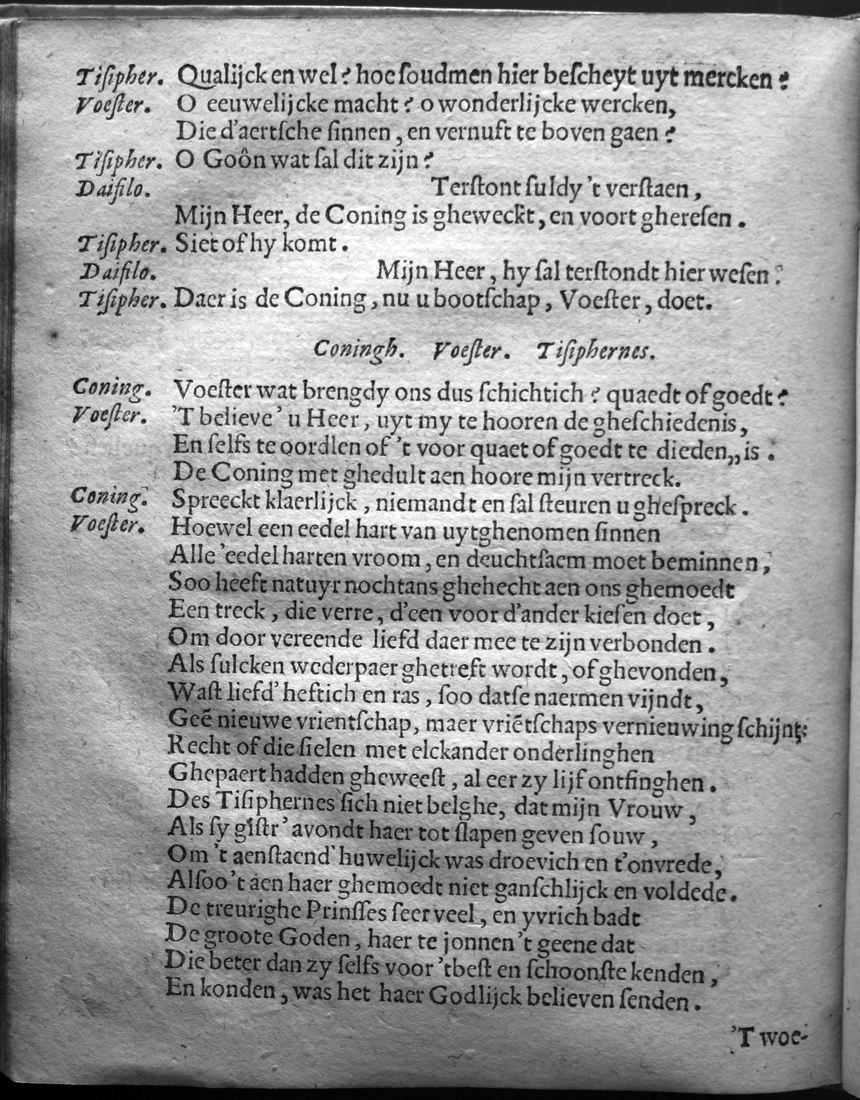 Tiſipher. Qualijck en wel? hoe ſoudmen hier beſcheyt uyt mercken?
Voeſter. O eeuwelijcke macht? o wonderlijcke wercken,
Die d'aertſche ſinnen, en vernuft te boven gaen?
Tiſipher. O Goôn wat ſal dit zijn?
Daiſilo. Terſtont ſuldy 't verſtaen,
Mijn Heer, de Coning is gheweckt, en voort ghereſen.
Tiſipher. Siet of hy komt.
Daiſilo. Mijn Heer, hy ſal terſtondt hier weſen.
Tiſipher. Daer is de Coning, nu u bootſchap, Voeſter, doet.
Coningh. Voeſter. Tiſiphernes.
Coning. Voeſter wat brengdy ons dus ſchichtich? quaedt of goedt?
Voeſter. 'T believe' u Heer, uyt my te hooren de gheſchiedenis,
En ſelfs te oordlen of 't voor quaet of goedt te dieden„ is.
De Coning met ghedult aen hoore mijn vertreck.
Coning. Spreeckt klaerlijck, niemandt en ſal ſteuren u gheſpreck.
Voeſter. Hoewel een eedel hart van uytghenomen ſinnen
Alle 'eedel harten vroom, en deuchtſaem moet beminnen,
Soo heeft natuyr nochtans ghehecht aen ons ghemoedt
Een treck, die verre, d'een voor d'ander kieſen doet,
Om door vereende liefd daer mee te zijn verbonden.
Als ſulcken wederpaer ghetreft wordt, of ghevonden,
Waſt liefd' heftich en ras, ſoo datſe naermen vijndt,
Geē nieuwe vrientſchap, maer vriētſchaps vernieuwing ſchijnt:
Recht of die ſielen met elckander onderlinghen
Ghepaert hadden gheweeſt, al eer zy lijf ontfinghen.
Des Tiſiphernes ſich niet belghe, dat mijn Vrouw,
Als ſy giſtr' avondt haer tot ſlapen geven ſouw,
Om 't aenſtaend' huwelijck was droevich en t'onvrede,
Alſoo 't aen haer ghemoedt niet ganſchlijck en voldede.
De treurighe Prinſſes ſeer veel, en yvrich badt
De groote Goden, haer te jonnen 't geene dat
Die beter dan zy ſelfs voor 'tbeſt en ſchoonſte kenden,
En konden, was het haer Godlijck believen ſenden.
'T woe-